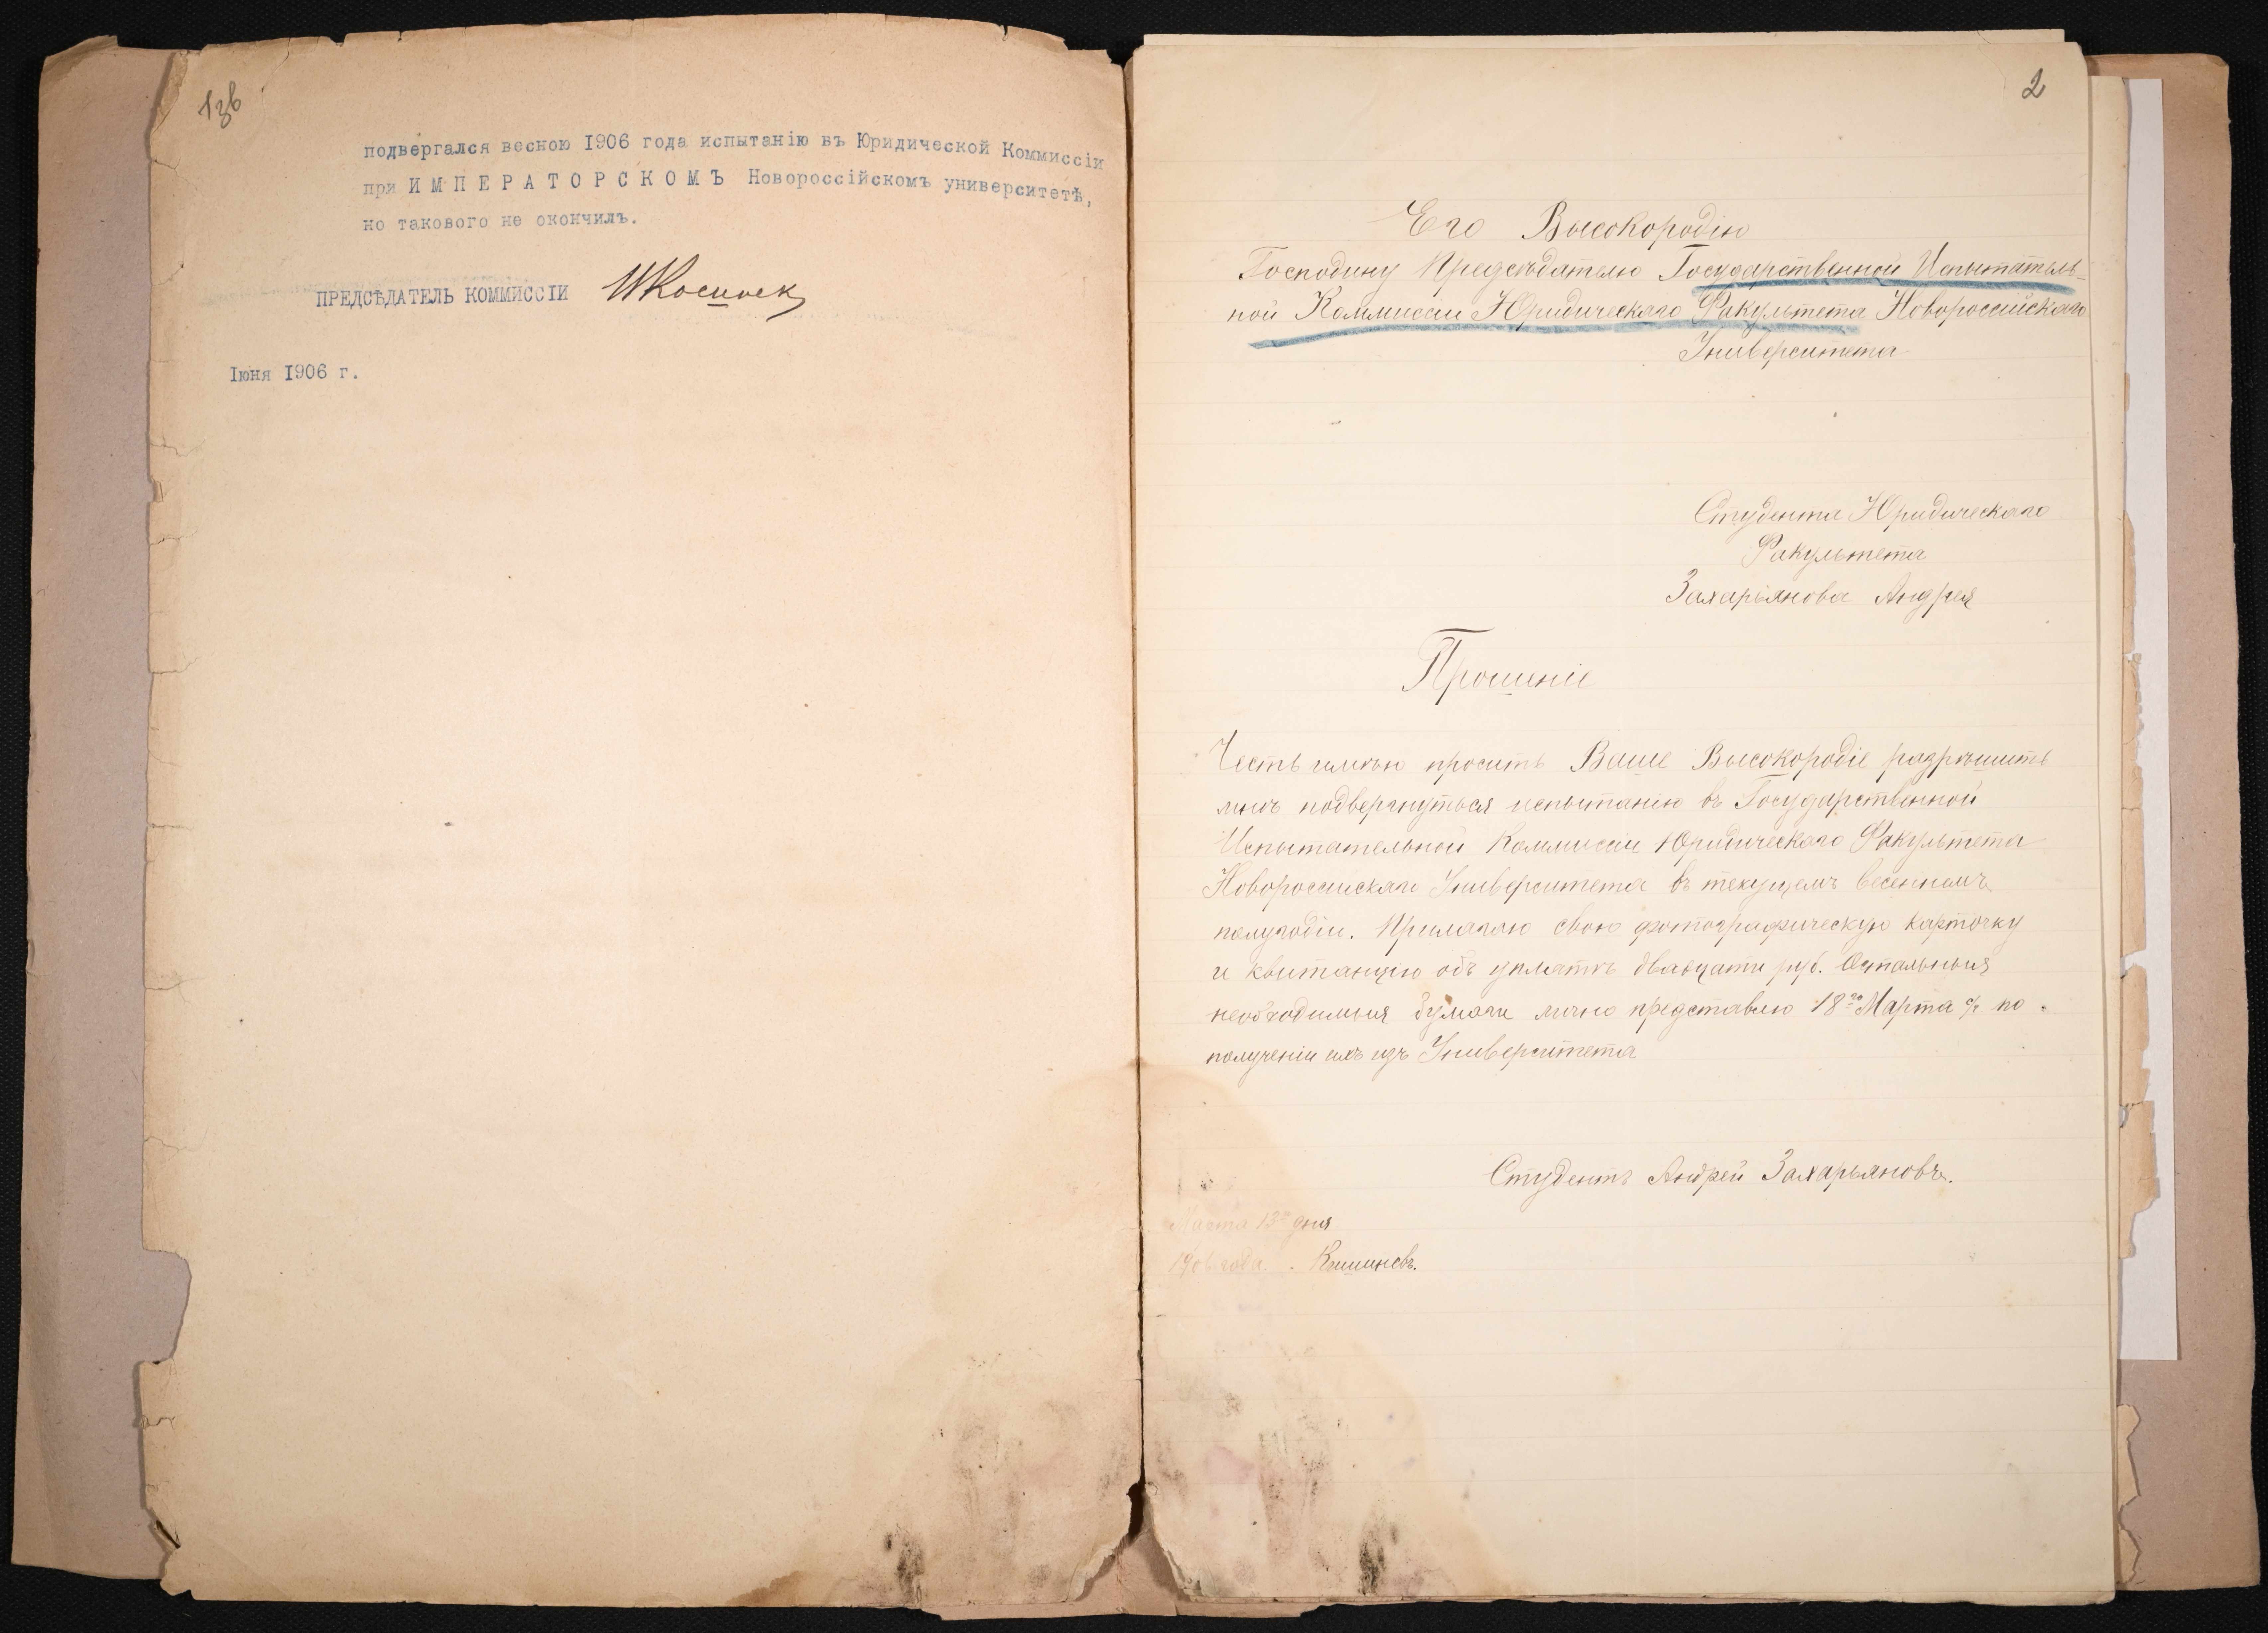 1зв
подвергался весною 1906 года испытанію въ Юридической Коммиссіи
при ИМПЕРАТОРСКОМЪ Новороссійскомъ университетѣ,
но такового не окончилъ.
ПРЕДСѢДАТЕЛЬ КОММИССІИ
Іюня 1906 г.
2
Его Высокородію
Господину Предсѣдателю Государственной Испытатель-
ной Коммиссіи Юридическаго Факультета Новороссійскаго
Университета
Студента Юридическаго
Факультета
Захарьянова Андрея
Прошеніе
Честь имѣю просить Ваше Высокородіе разрѣшить
мнѣ подвергнуться испытанію въ Государственной
Испытательной Коммисіи Юридическаго Факультета
Новороссійскаго Университета въ текущемъ весеннемъ
полугодіи. Прилагаю свою фотографическую карточку
и квитанцію объ уплатѣ двадцати руб. Остальныя
необходимыя бумаги лично представлю 18го Марта с/г по
полученіи ихъ изъ Университета
Студентъ Андрей Захарьяновъ.
Марта 13го дня
1906 года. Кишиневъ.